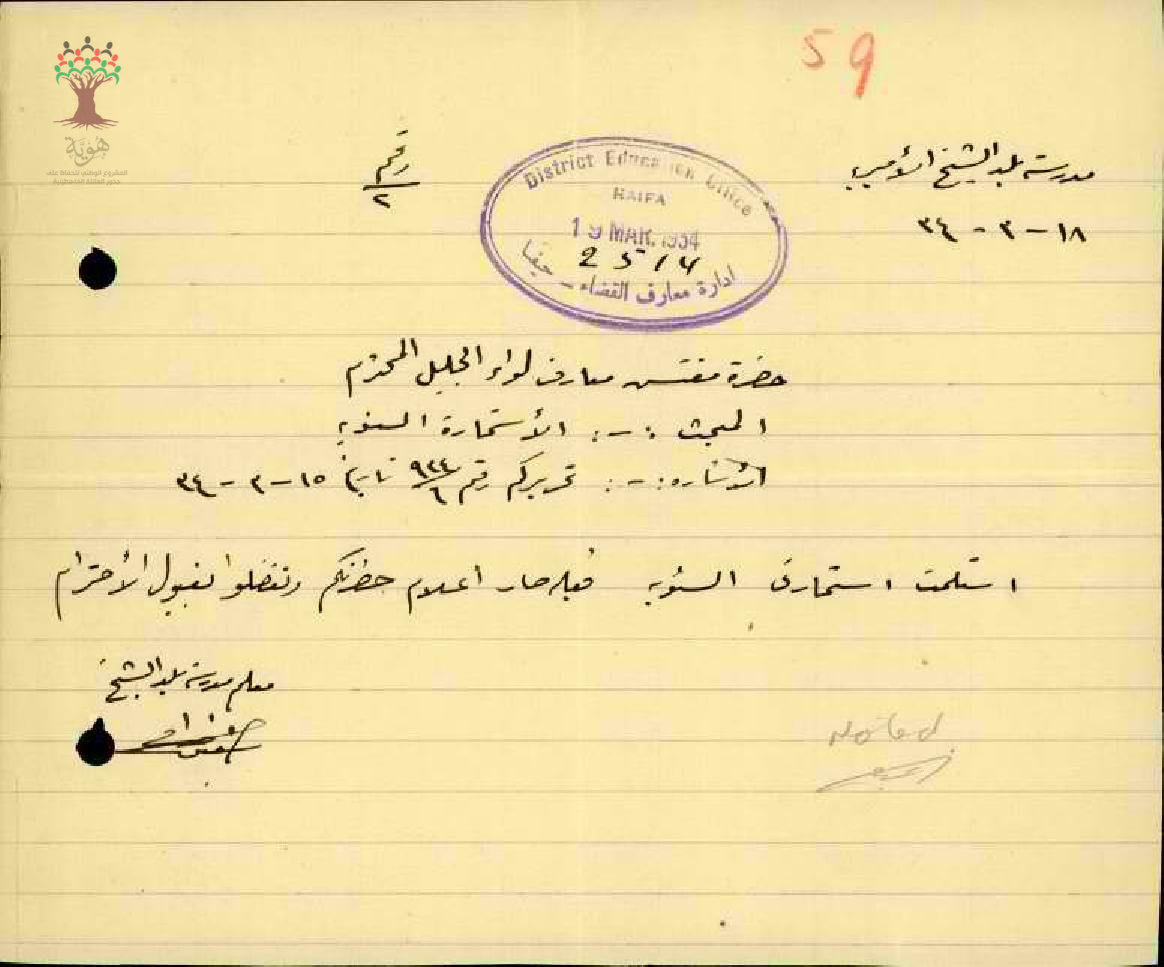 59
هوية
المشروع الوطني للحفاظ على
جذور العائلة الفلسطينية
مدرسة بلد الشيخ الأميرية
١٨ - ٣ - ٣٤
رقم
٢
District Education Office
HAIFA
19 MAR. 1934
25/4
ادارة معارف القضاء - حيفا
حضرة مفتش معارف لواء الجليل المحترم
المبحث :-: الأستمارة السنويه
الأشاره :-: تحريركم رقم ٦/٩٣٤ تاريخ ١٥-٣-٣٤
استلمت استمارتي السنويه فعليه صار اعلام حضرتكم وتفضلوا بقبول الأحترام
معلم مدرسة بلد الشيخ
Noted